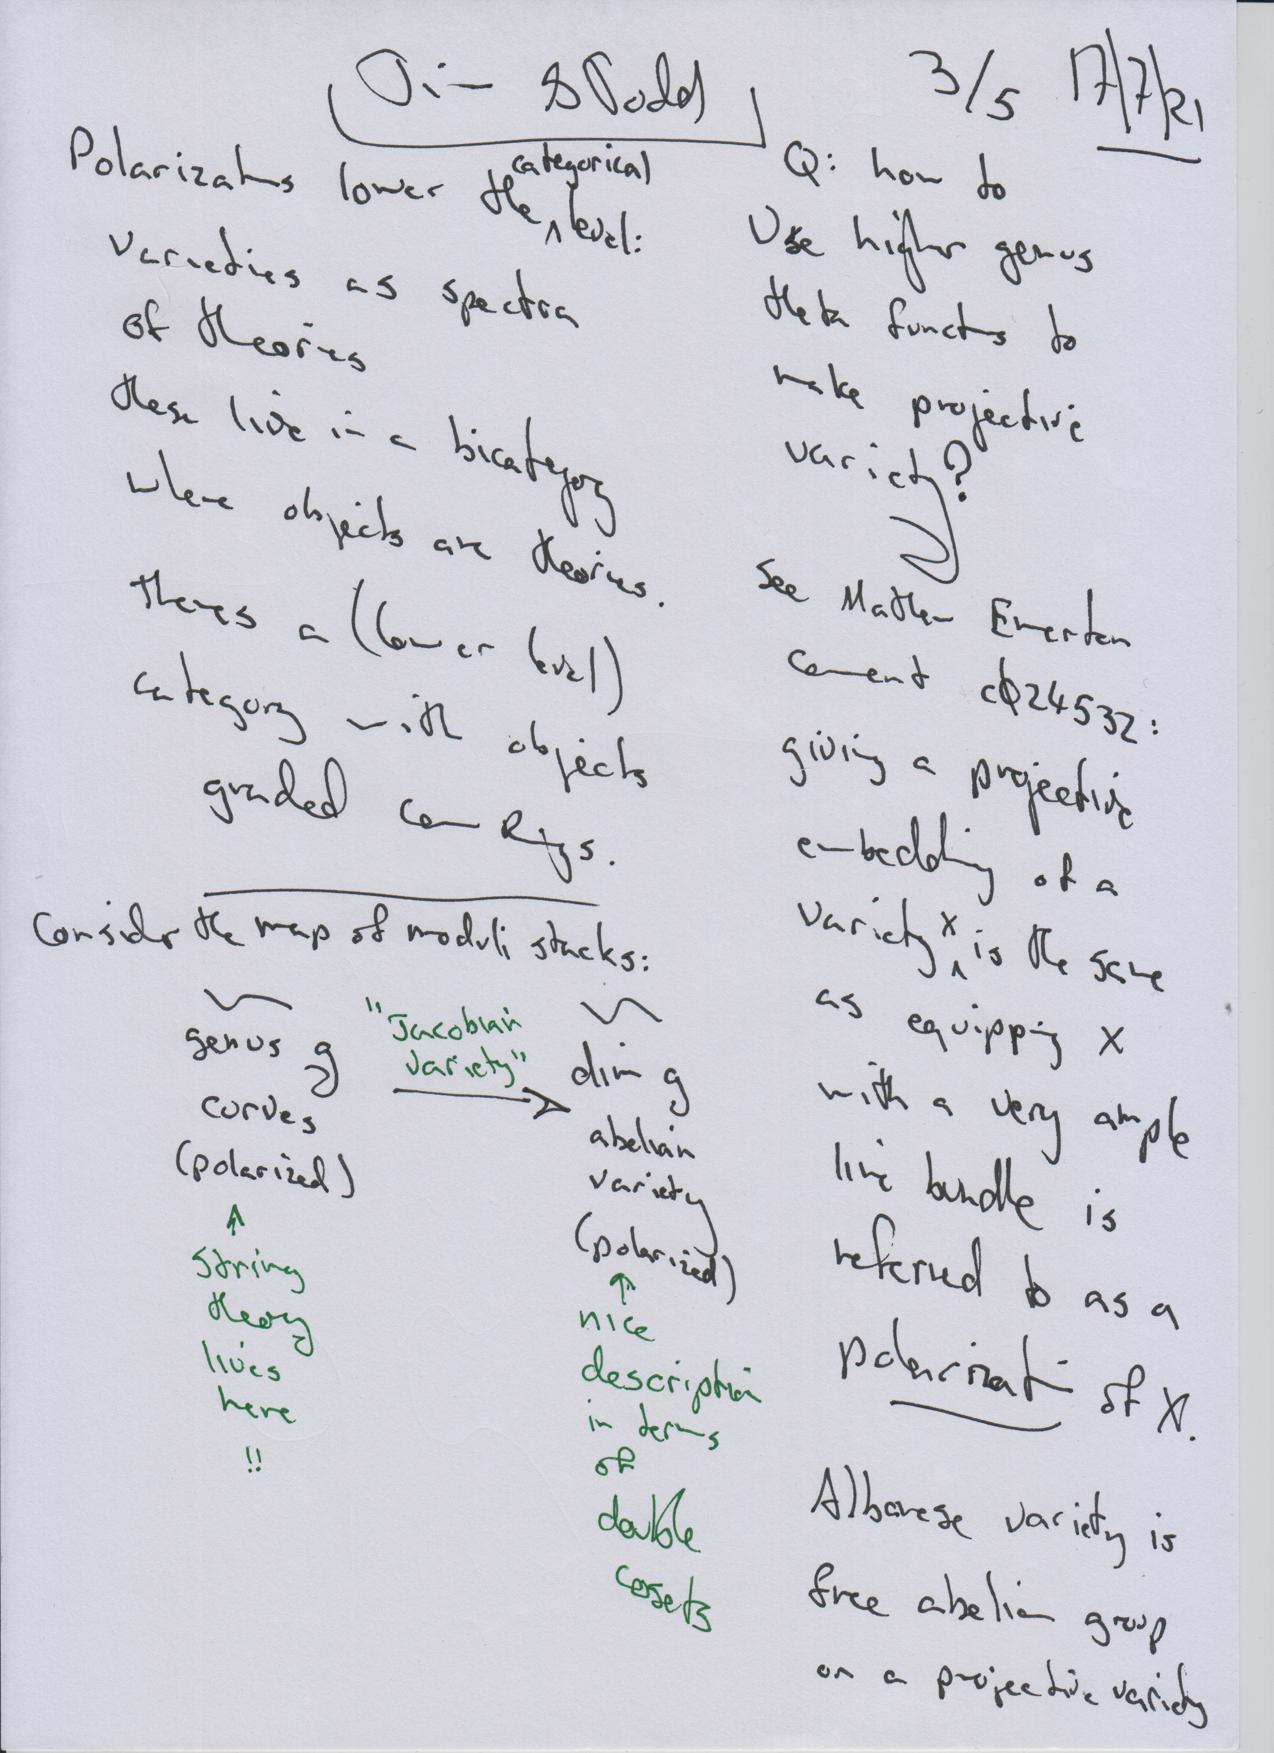 Jim & Todd
3/5 17/7/21
Polarizatns lower the categorical level:
varieties as spectra
of theories
these live in a bicategory
where objects are theories.
theres a (lower level)
category with objects
graded com Rngs.
Consider the map of moduli stacks:
genus g
curves
(polarized)
↑
string
theory
lives
here
!!
"Jacobian
variety"
→
dim g
abelian
variety
(polarized)
↑
nice
description
in terms
of
double
cosets
Q: how to
Use higher genus
theta functns to
make projective
variety?
see Mathew Emerton
coment 24532:
giving a projective
embedding of a
variety X is the same
as equipping X
with a very ample
line bundle is
referred to as a
polarizati of X.
Albanese variety is
free abelian group
on a projective variety